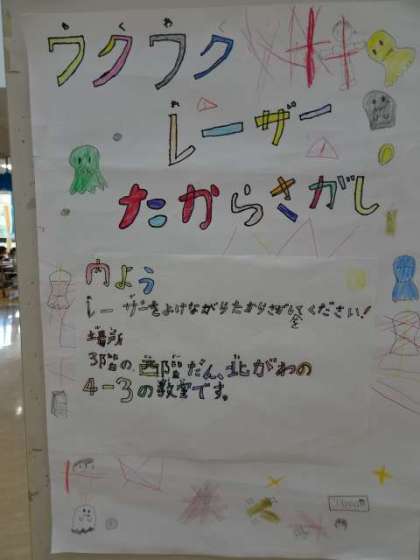 ワクワク
レーザー
たからさがし
内よう
レーザーをよけながらたからさがしをしてください!
場所
3階の西階だん、北がわの
4-3の教室です。